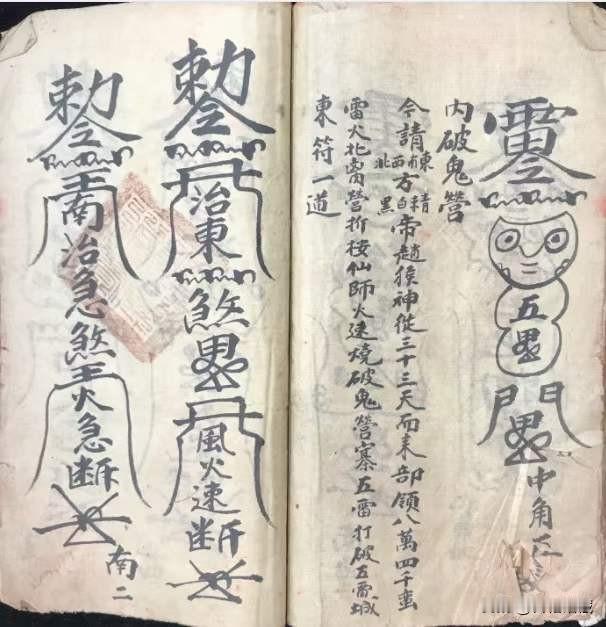 雷令
五
門
中角
内破鬼营
令請東南西北方白黑帝趙猴神從三十三天而来部領八萬四千蛮
雷火北營折梭仙師火速燒破鬼營寨五雷打破五雷城
東符一道
勅令
治東
煞
風火速断
勅令
南治急煞
火急断
南二